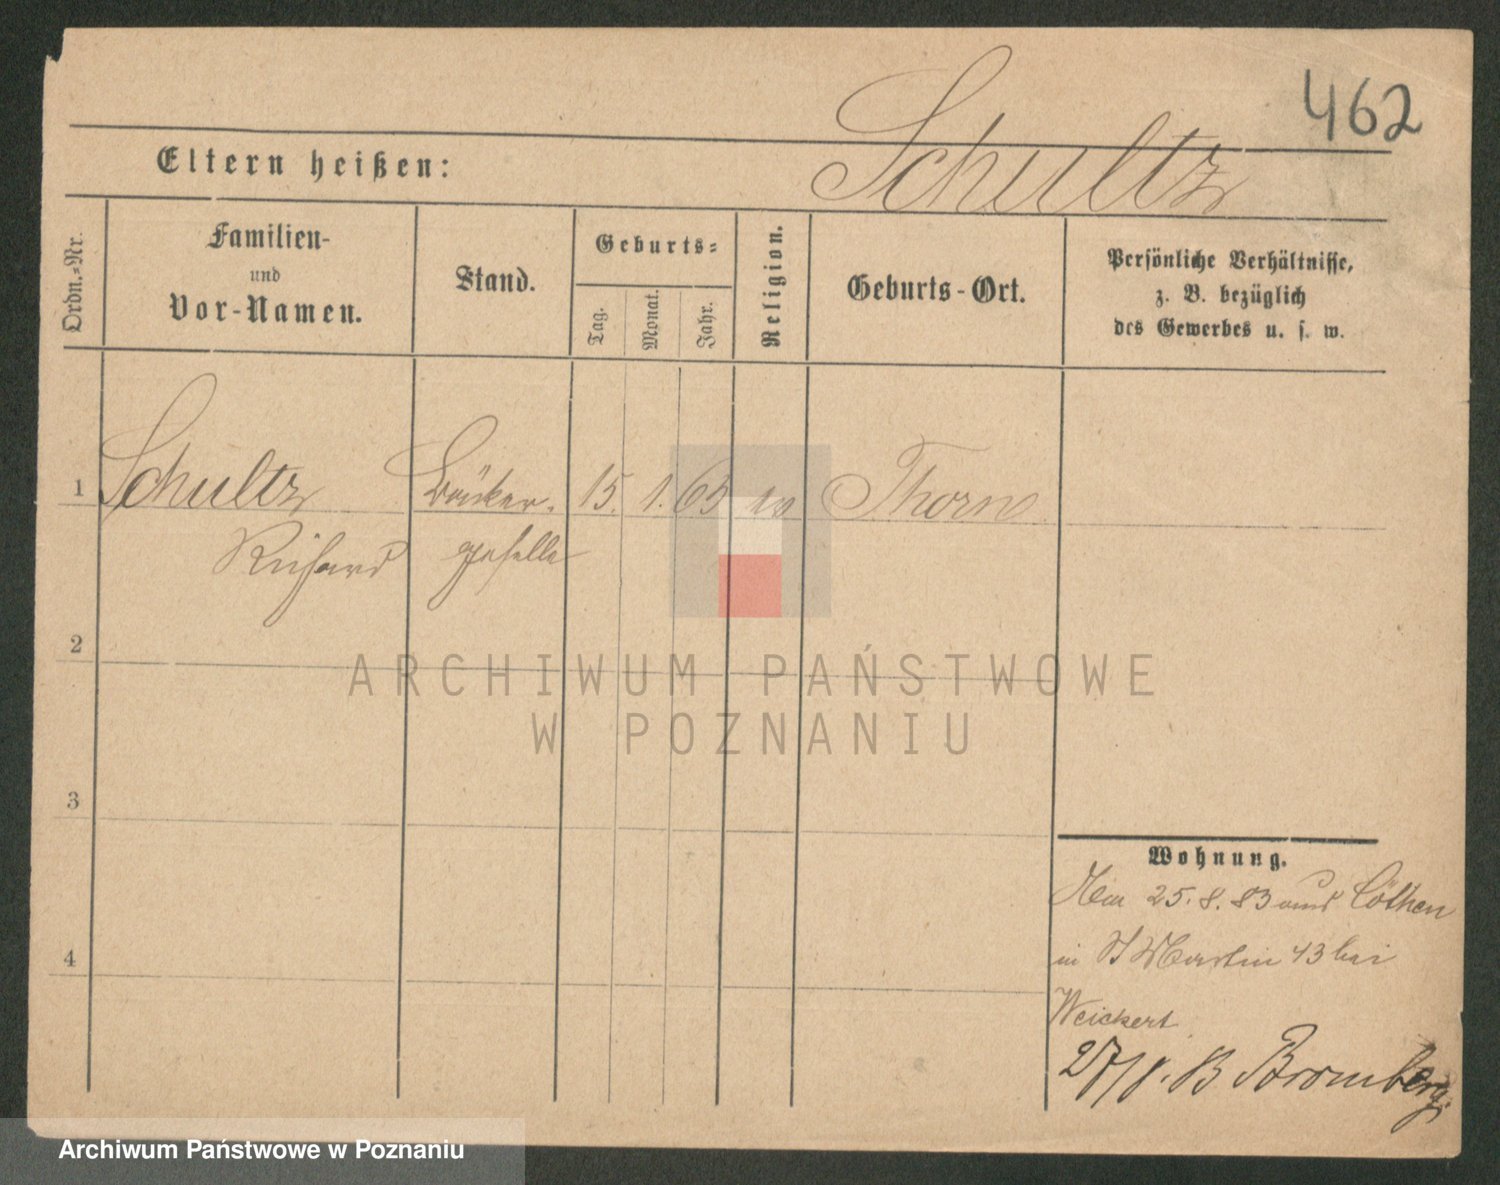 462
Schultz
Eltern heißen:
Ordn.-Nr.
Familien-
und
Vor-Namen.
Stand.
Geburts-
Tag.
Monat.
Jahr.
Religion.
Geburts-Ort.
Persönliche Verhältnisse,
z. B. bezüglich
des Gewerbes u. s. w.
1 Schultz Bäcker- 15. 1. 65 Thorn
Richard geselle
2
ARCHIWUM PAŃSTWOWE
W POZNANIU
3
4
Wohnung.
25. 8. 83 aus Cöthen
in St Martin 43 bei
Weickert
27/8. 83 Bromberg
Archiwum Państwowe w Poznaniu